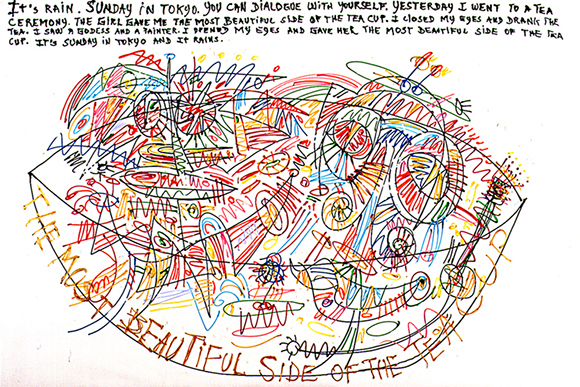 It's RAIN. SUNDAY iN TOKYO. YOU CAN DIALOGUE WITH YOURSELF. YESTERDAY I WENT TO A TEA
CEREMONY. THE GIRL GAVE ME THE MOST BEAUTIFUL SIDE OF THE TEA CUP. I CLOSED MY EYES AND DRANK THE
TEA. I SAW A GODESS AND A PAINTER. I OPENED MY EYES AND GAVE HER THE MOST BEAUTIFUL SIDE OF THE TEA
CUP. IT'S SUNDAY IN TOKYO AND IT RAINS.
THE MOST BEAUTIFUL SIDE OF THE TEA CUP